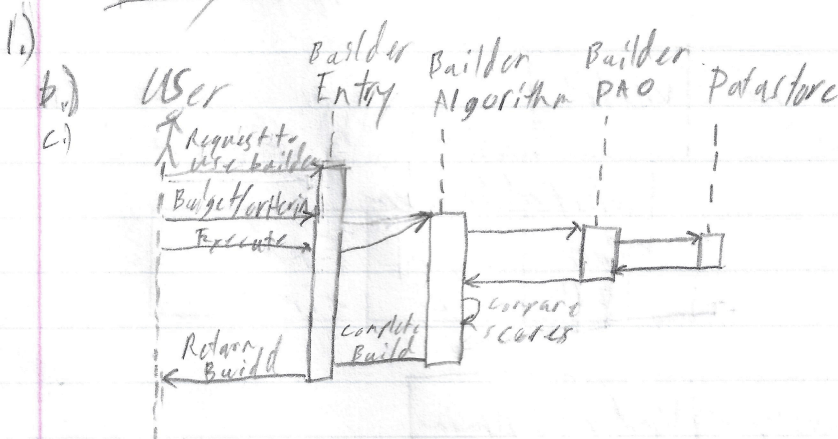 1.)
b.)
c.)
User
Builder
Entry
Builder
Algorithm
Builder
DAO
Datastore
Request to
use builder
Budget/criteria
Execute
compare
scores
Complete
Build
Return
Build